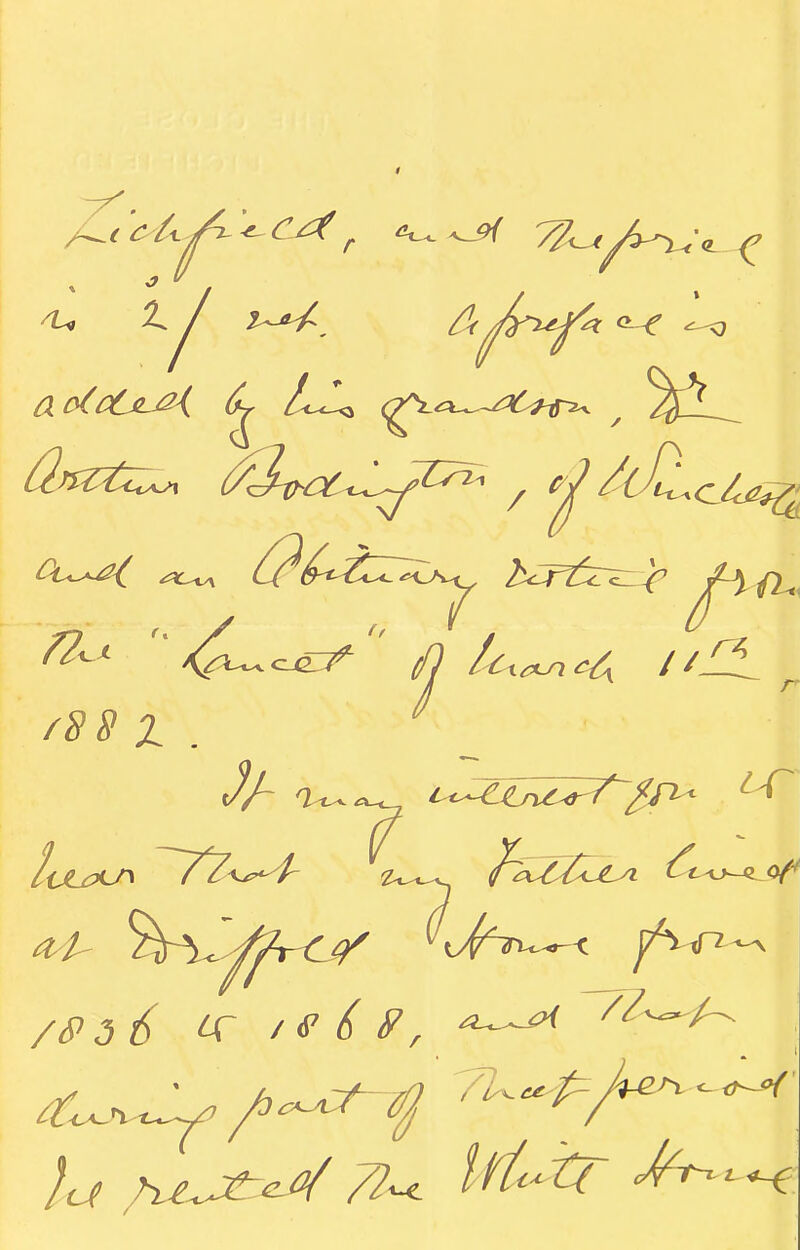 Lichfield, and the price
is 2/ net. A preface is
added by his grandson, Dr
Arthur Bodington, of Winchester
and an Obituary notice from
the "Lancet" of March 11th,
1882.
It may interest you to
hear that my Father lived
at Driffold House from
1836 to 1868, and that
during part of that period
he rented the White House